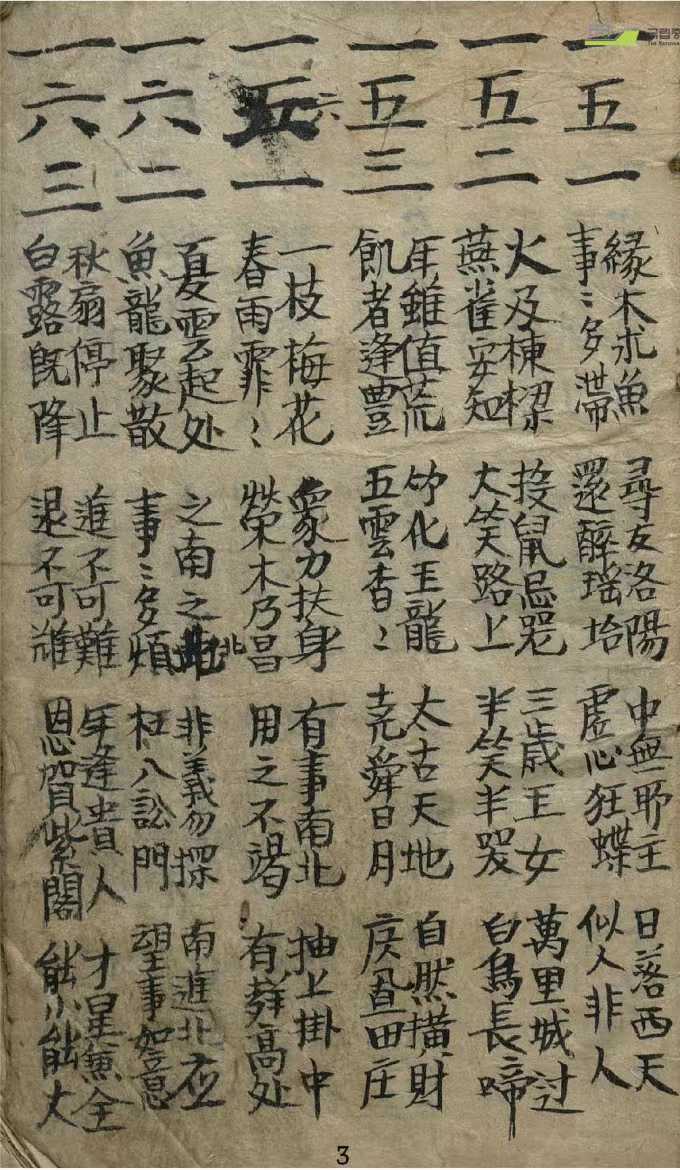 一五一
緣木求魚 尋友洛陽 中無耶主 日落西天
事〻多滯 還醉瑤坮 虛心狂蝶 似人非人
一五二
火及棟樑 投鼠忌器 三歲王女 萬里城过
燕雀安知 大笑路上 半笑半哭 白鳥長啼
一五三
年雖值荒 竹化王龍 太古天地 自然橫財
飢者逢豊 五雲杳〻 堯舜日月 置田庄
一六一
一枝梅花 衆力扶身 有事南北 抽上掛中
春雨霏〻 榮木乃昌 用之不竭 有高处
一六二
夏雲起处 之南之北 非義勿探 南進北在
魚龍聚散 事〻多煩 枉入訟門 望事如意
一六三
秋扇停止 進不可難 年逢貴人 才星兼全
白露既降 退不可 恩賀紫閣 能小能大
3
국립중
The Nationa